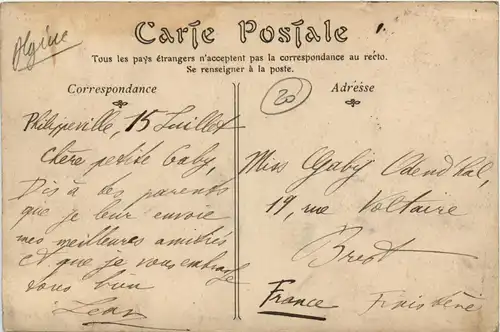 Algérie
Carte Postale
Tous les pays étrangers n'acceptent pas la correspondance au recto.
Se renseigner à la poste.
Correspondance
20
Philippeville, 15 Juillet
Chère petite Gaby,
Dis à tes parents
que je leur envoie
mes meilleures amitiés
et que je vous embrasse
tous bien
Léon
Adresse
Miss Gaby Odendhal,
19, rue Voltaire
Brest
France Finistère